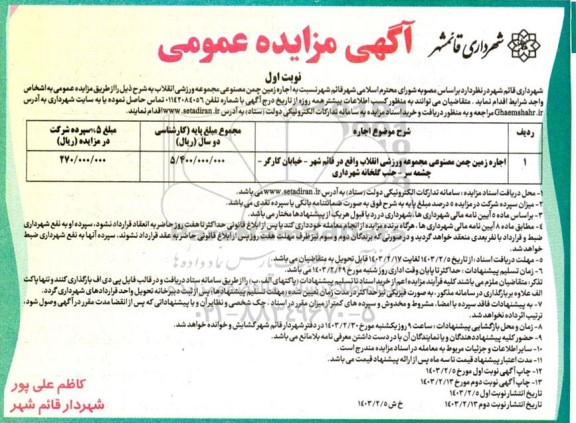 شهرداری قائمشهر
آگهی مزایده عمومی
نوبت اول
شهرداری قائم شهر در نظر دارد بر اساس مصوبه شورای محترم اسلامی شهر قائم شهر نسبت به اجاره زمین چمن مصنوعی مجموعه ورزشی انقلاب به شرح ذیل را از طریق مزایده عمومی به اشخاص
واجد شرایط اقدام نماید. متقاضیان می توانند به منظور کسب اطلاعات بیشتر همه روزه از تاریخ درج آگهی با شماره تلفن ۰۱۱۴۲۰۸۴۰۵۶ تماس حاصل نموده یا به سایت شهرداری به آدرس
Ghaemshahr.ir مراجعه و به منظور دریافت و خرید اسناد مزایده به سامانه تدارکات الکترونیکی دولت (ستاد) به آدرس www.setadiran.ir اقدام نمایند.
ردیف شرح موضوع اجاره مجموع مبلغ پایه (کارشناسی دو سال (ریال) مبلغ ۵% سپرده شرکت در مزایده (ریال)
۱ اجاره زمین چمن مصنوعی مجموعه ورزشی انقلاب واقع در قائم شهر - خیابان کارگر - چشمه سر - جنب گلخانه شهرداری ۵/۴۰۰/۰۰۰/۰۰۰ ۲۷۰/۰۰۰/۰۰۰
۱- محل دریافت اسناد مزایده: سامانه تدارکات الکترونیکی دولت (ستاد) به آدرس www.setadiran.ir می باشد.
۲- میزان سپرده شرکت در مزایده ۵ درصد مبلغ پایه به شرح فوق به صورت ضمانتنامه بانکی یا سپرده نقدی می باشد.
۳- بر اساس ماده ۵ آیین نامه مالی شهرداری ها، شهرداری در رد یا قبول هر یک از پیشنهادها مختار می باشد.
۴- مطابق ماده ۸ آیین نامه مالی شهرداری ها، هرگاه برنده مزایده از انجام معامله خودداری کند یا پس از ابلاغ قانونی حداکثر تا هفت روز حاضر به انعقاد قرارداد نشود، سپرده او به نفع شهرداری
ضبط و قرارداد با نفر بعدی منعقد خواهد گردید و در صورتی که برندگان دوم و سوم نیز ظرف مهلت هفت روز پس از ابلاغ قانونی حاضر به عقد قرارداد نشوند، سپرده آنها به نفع شهرداری ضبط
خواهد شد.
۵- مهلت دریافت اسناد: از تاریخ ۱۴۰۳/۲/۵ لغایت ۱۴۰۳/۲/۱۷ قابل تحویل به متقاضیان می باشد.
۶- زمان تسلیم پیشنهادات: حداکثر تا پایان وقت اداری روز شنبه مورخ ۱۴۰۳/۲/۲۹ می باشد.
تذکر: متقاضیان ملزم می باشند کلیه فرآیند مزایده اعم از خرید اسناد تا تسلیم پیشنهادات (پاکتهای الف، ب) را از طریق سامانه ستاد دریافت و در قالب فایل پی دی اف بارگذاری کنند و تنها پاکت
الف علاوه بر بارگذاری در سامانه مذکور، به صورت فیزیکی نیز حداکثر تا مدت زمان تعیین شده (مهلت تسلیم پیشنهادها) پس از ثبت دبیرخانه تحویل واحد قراردادهای شهرداری گردد.
۷- به پیشنهادات فاقد سپرده یا امضا، مشروط و مخدوش و سپرده های کمتر از میزان مقرر در اسناد، چک شخصی و نظایر آن و یا پیشنهاداتی که پس از انقضا مدت مقرر در آگهی وصول شود،
ترتیب اثر داده نخواهد شد.
۸- زمان و محل بازگشایی پیشنهادات: ساعت ۹ روز یکشنبه مورخ ۱۴۰۳/۲/۳۰ در دفتر شهردار قائم شهر گشایش و خوانده خواهد شد.
۹- حضور کلیه پیشنهاد دهندگان و یا نمایندگان آن با در دست داشتن معرفی نامه بلامانع می باشد.
۱۰- سایر اطلاعات و جزئیات مربوط به معامله در اسناد مزایده مندرج است.
۱۱- مدت اعتبار پیشنهاد قیمت تا سه ماه پس از ارائه پیشنهاد قیمت می باشد.
۱۲- چاپ آگهی نوبت اول مورخ ۱۴۰۳/۲/۵
۱۳- چاپ آگهی نوبت دوم مورخ ۱۴۰۳/۲/۱۳
تاریخ انتشار نوبت اول ۱۴۰۳/۲/۵
تاریخ انتشار نوبت دوم ۱۴۰۳/۲/۱۳ خ ش ۱۴۰۳/۲/۵
کاظم علی پور
شهردار قائم شهر